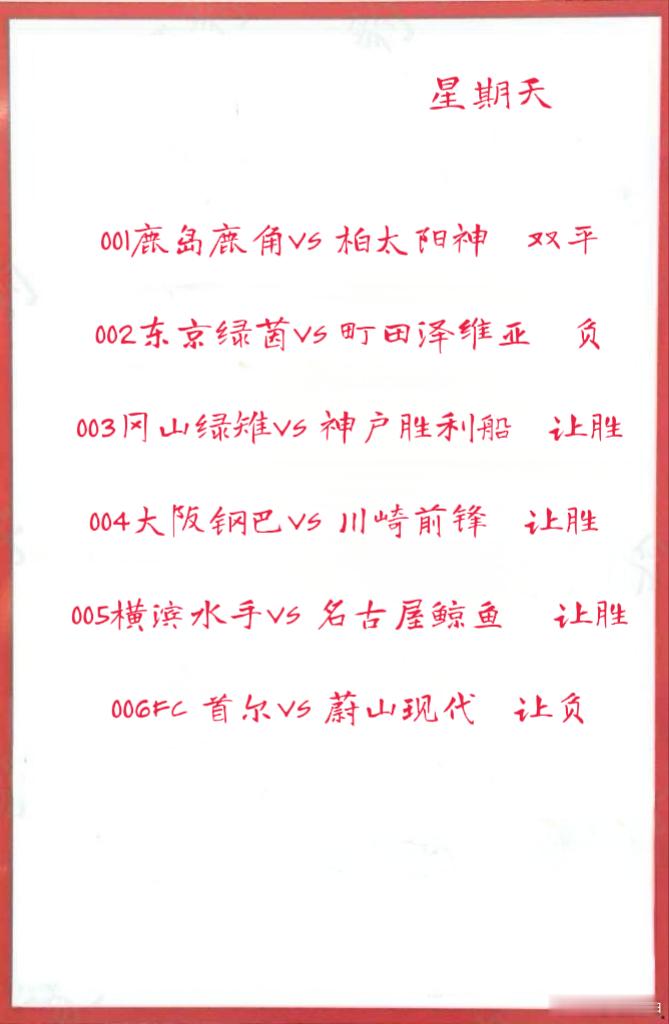 星期天
001鹿岛鹿角VS 柏太阳神 双平
002东京绿茵VS 町田泽维亚 负
003冈山绿雉VS 神户胜利船 让胜
004大阪钢巴VS 川崎前锋 让胜
005横滨水手VS 名古屋鲸鱼 让胜
006FC 首尔VS 蔚山现代 让负